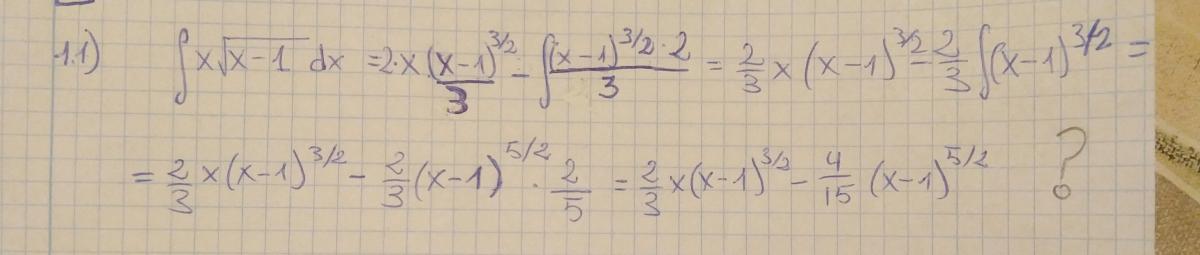 1.1) ∫x√(x-1) dx = 2·x (x-1)^3/2 / 3 - ∫(x-1)^3/2 · 2 / 3 = 2/3 x (x-1)^3/2 - 2/3 ∫(x-1)^3/2 =
= 2/3 x (x-1)^3/2 - 2/3 (x-1)^5/2 · 2/5 = 2/3 x (x-1)^3/2 - 4/15 (x-1)^5/2 ?